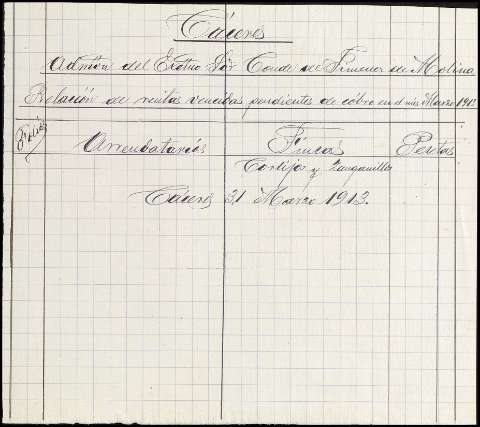 Cáceres
Admón del Excmo Sōr Conde de Jimenez de Molina
Relación de rentas vencidas pendientes de cóbro en el mes Marzo 1913
Fólios Arrendatarios Fincas Pesetas
Cortijo y Zanganillo
Cáceres 31 Marzo 1913.